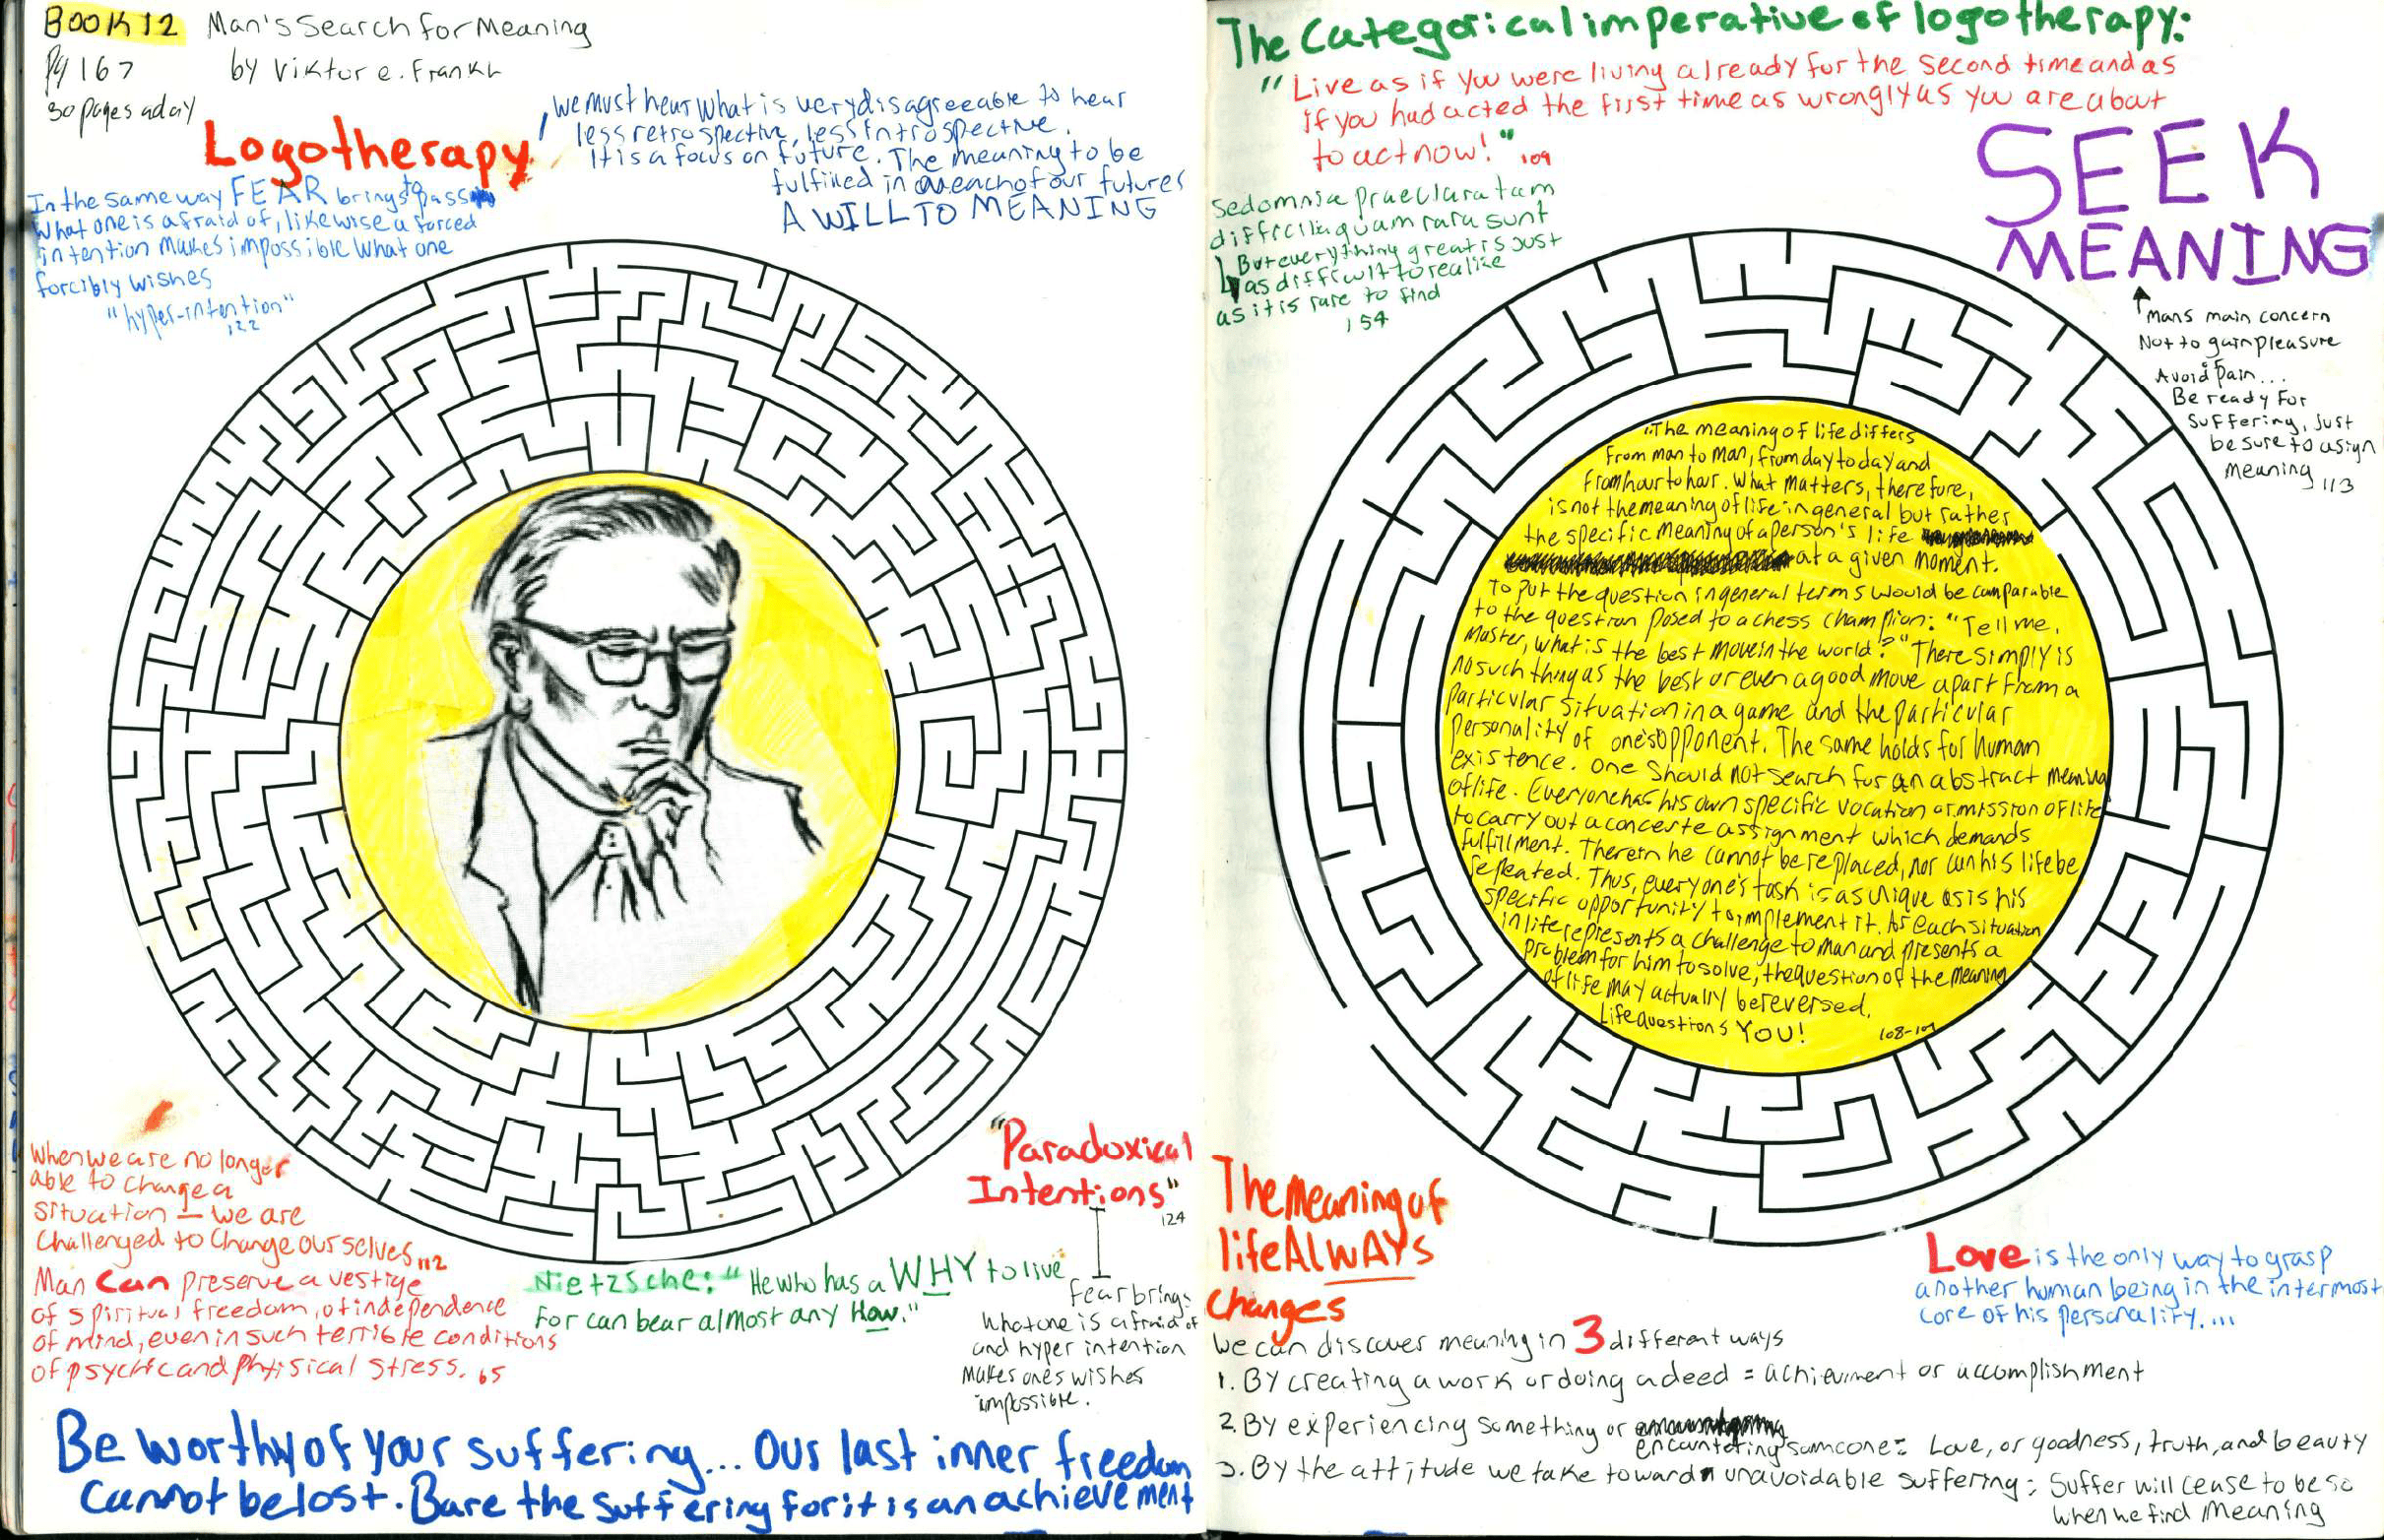 BOOK 12 Man's Search for Meaning
Pg 167 by Viktor e. Frankl
30 pages a day
Logotherapy
we must hear what is very disagreeable to hear
less retrospective, less introspective.
It is a focus on future. The meaning to be
fulfilled in each of our futures
A WILL TO MEANING
In the same way FEAR brings to pass
what one is afraid of, likewise a forced
intention makes impossible what one
forcibly wishes
"hyper-intention"
122
When we are no longer
able to change a
situation – we are
challenged to change ourselves 112
Man can preserve a vestige
of spiritual freedom, of independence
of mind, even in such terrible conditions
of psychic and physical stress. 65
Nietzsche: "He who has a WHY to live
for can bear almost any How."
"Paradoxical
Intentions"
124
fear brings
what one is afraid of
and hyper intention
makes ones wishes
impossible.
Be worthy of your suffering... Our last inner freedom
cannot be lost. Bare the suffering for it is an achievement
The Categorical imperative of logotherapy:
"Live as if you were living already for the second time and as
if you had acted the first time as wrongly as you are about
to act now!" 109
SEEK
MEANING
Sed omnia praeclara tam
difficilia quam rara sunt
But everything great is just
as difficult to realize
as it is rare to find
154
Mans main concern
Not to gain pleasure
or
Avoid pain...
Be ready for
suffering, just
be sure to asign
meaning 113
"The meaning of life differs
from man to man, from day to day and
from hour to hour. What matters, therefore,
is not the meaning of life in general but rather
the specific meaning of a person's life
at a given moment.
To put the question in general terms would be comparable
to the question posed to a chess champion: "Tell me,
Master, what is the best move in the world?" There simply is
no such thing as the best or even a good move apart from a
particular situation in a game and the particular
personality of one's opponent. The same holds for human
existence. One should not search for an abstract meaning
of life. Everyone has his own specific vocation or mission of life
to carry out a concerte assignment which demands
fulfillment. Therein he cannot be replaced, nor can his life be
repeated. Thus, everyone's task is as unique as is his
specific opportunity to implement it. As each situation
in life represents a challenge to man and presents a
problem for him to solve, the question of the meaning
of life may actually be reversed.
Life questions YOU! 108-109
The meaning of
life ALWAYS
changes
Love is the only way to grasp
another human being in the intermost
core of his personality....
We can discover meaning in 3 different ways
1. By creating a work or doing a deed = achievment or accomplishment
2. By experiencing something or
encountering someone = Love, or goodness, truth, and beauty
3. By the attitude we take toward unavoidable suffering: Suffer will cease to be so
when we find meaning